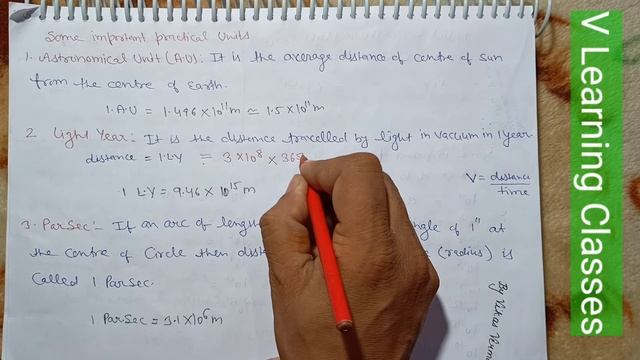 Some important practical Units
1. Astronomical Unit (A.U): It is the average distance of centre of sun
from the centre of Earth.
1 A.U = 1.496 × 10¹¹ m ≃ 1.5 × 10¹¹ m
2. Light Year: It is the distance travelled by light in vacuum in 1 year
distance = 1 L.Y = 3 × 10⁸ × 365
V = distance/time
1 L.Y = 9.46 × 10¹⁵ m
3. ParSec:- If an arc of length angle of 1" at
the centre of Circle then dist (radius) is
Called 1 ParSec.
1 ParSec = 3.1 × 10⁶ m
By Vikas Verma
V Learning Classes